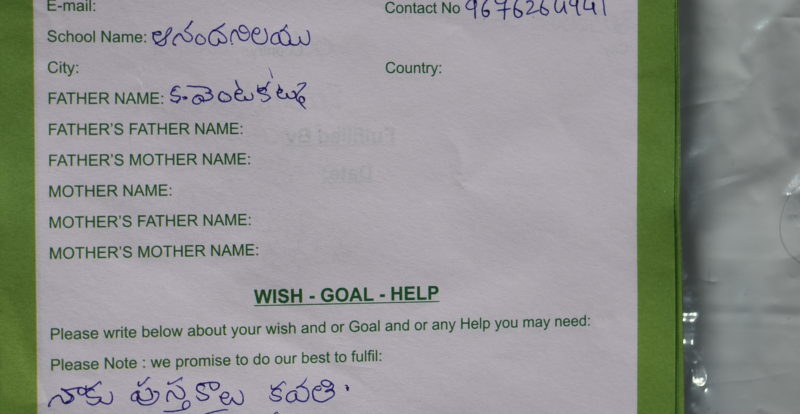 E-mail: Contact No 9676264941
School Name: ఆనందనిలయు
City: Country:
FATHER NAME: క.వెంటకటు
FATHER'S FATHER NAME:
FATHER'S MOTHER NAME:
MOTHER NAME:
MOTHER'S FATHER NAME:
MOTHER'S MOTHER NAME:
WISH - GOAL - HELP
Please write below about your wish and or Goal and or any Help you may need:
Please Note : we promise to do our best to fulfil:
నాకు పుస్తకాలు కవలి.